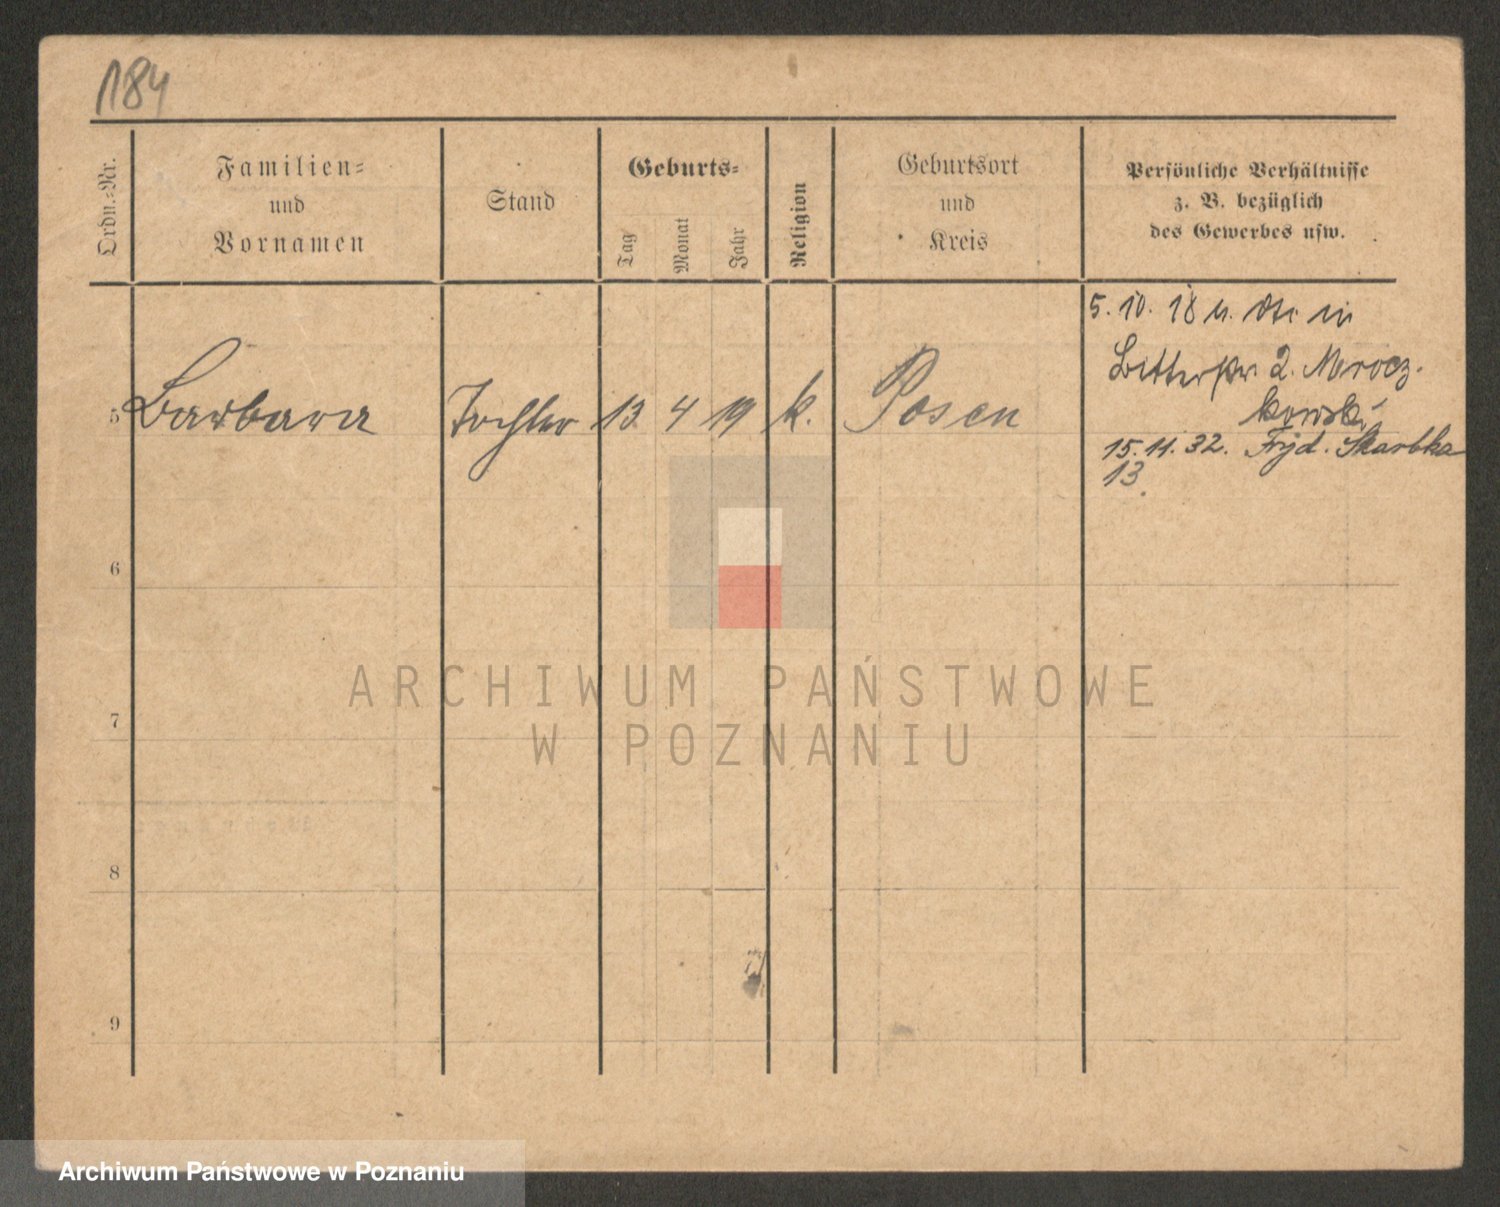 184
Ordn.=Nr.
Familien=
und
Vornamen
Stand
Geburts=
Tag
Monat
Jahr
Religion
Geburtsort
und
Kreis
Persönliche Verhältnisse
z. B. bezüglich
des Gewerbes usw.
5. 10. 18 in
2. Mrocz-
kowski
5 Barbara Tochter 13 4 19 k. Posen
15. 11. 32. Fryd. Skarbka
13
6
7
8
9
ARCHIWUM PAŃSTWOWE
W POZNANIU
Archiwum Państwowe w Poznaniu